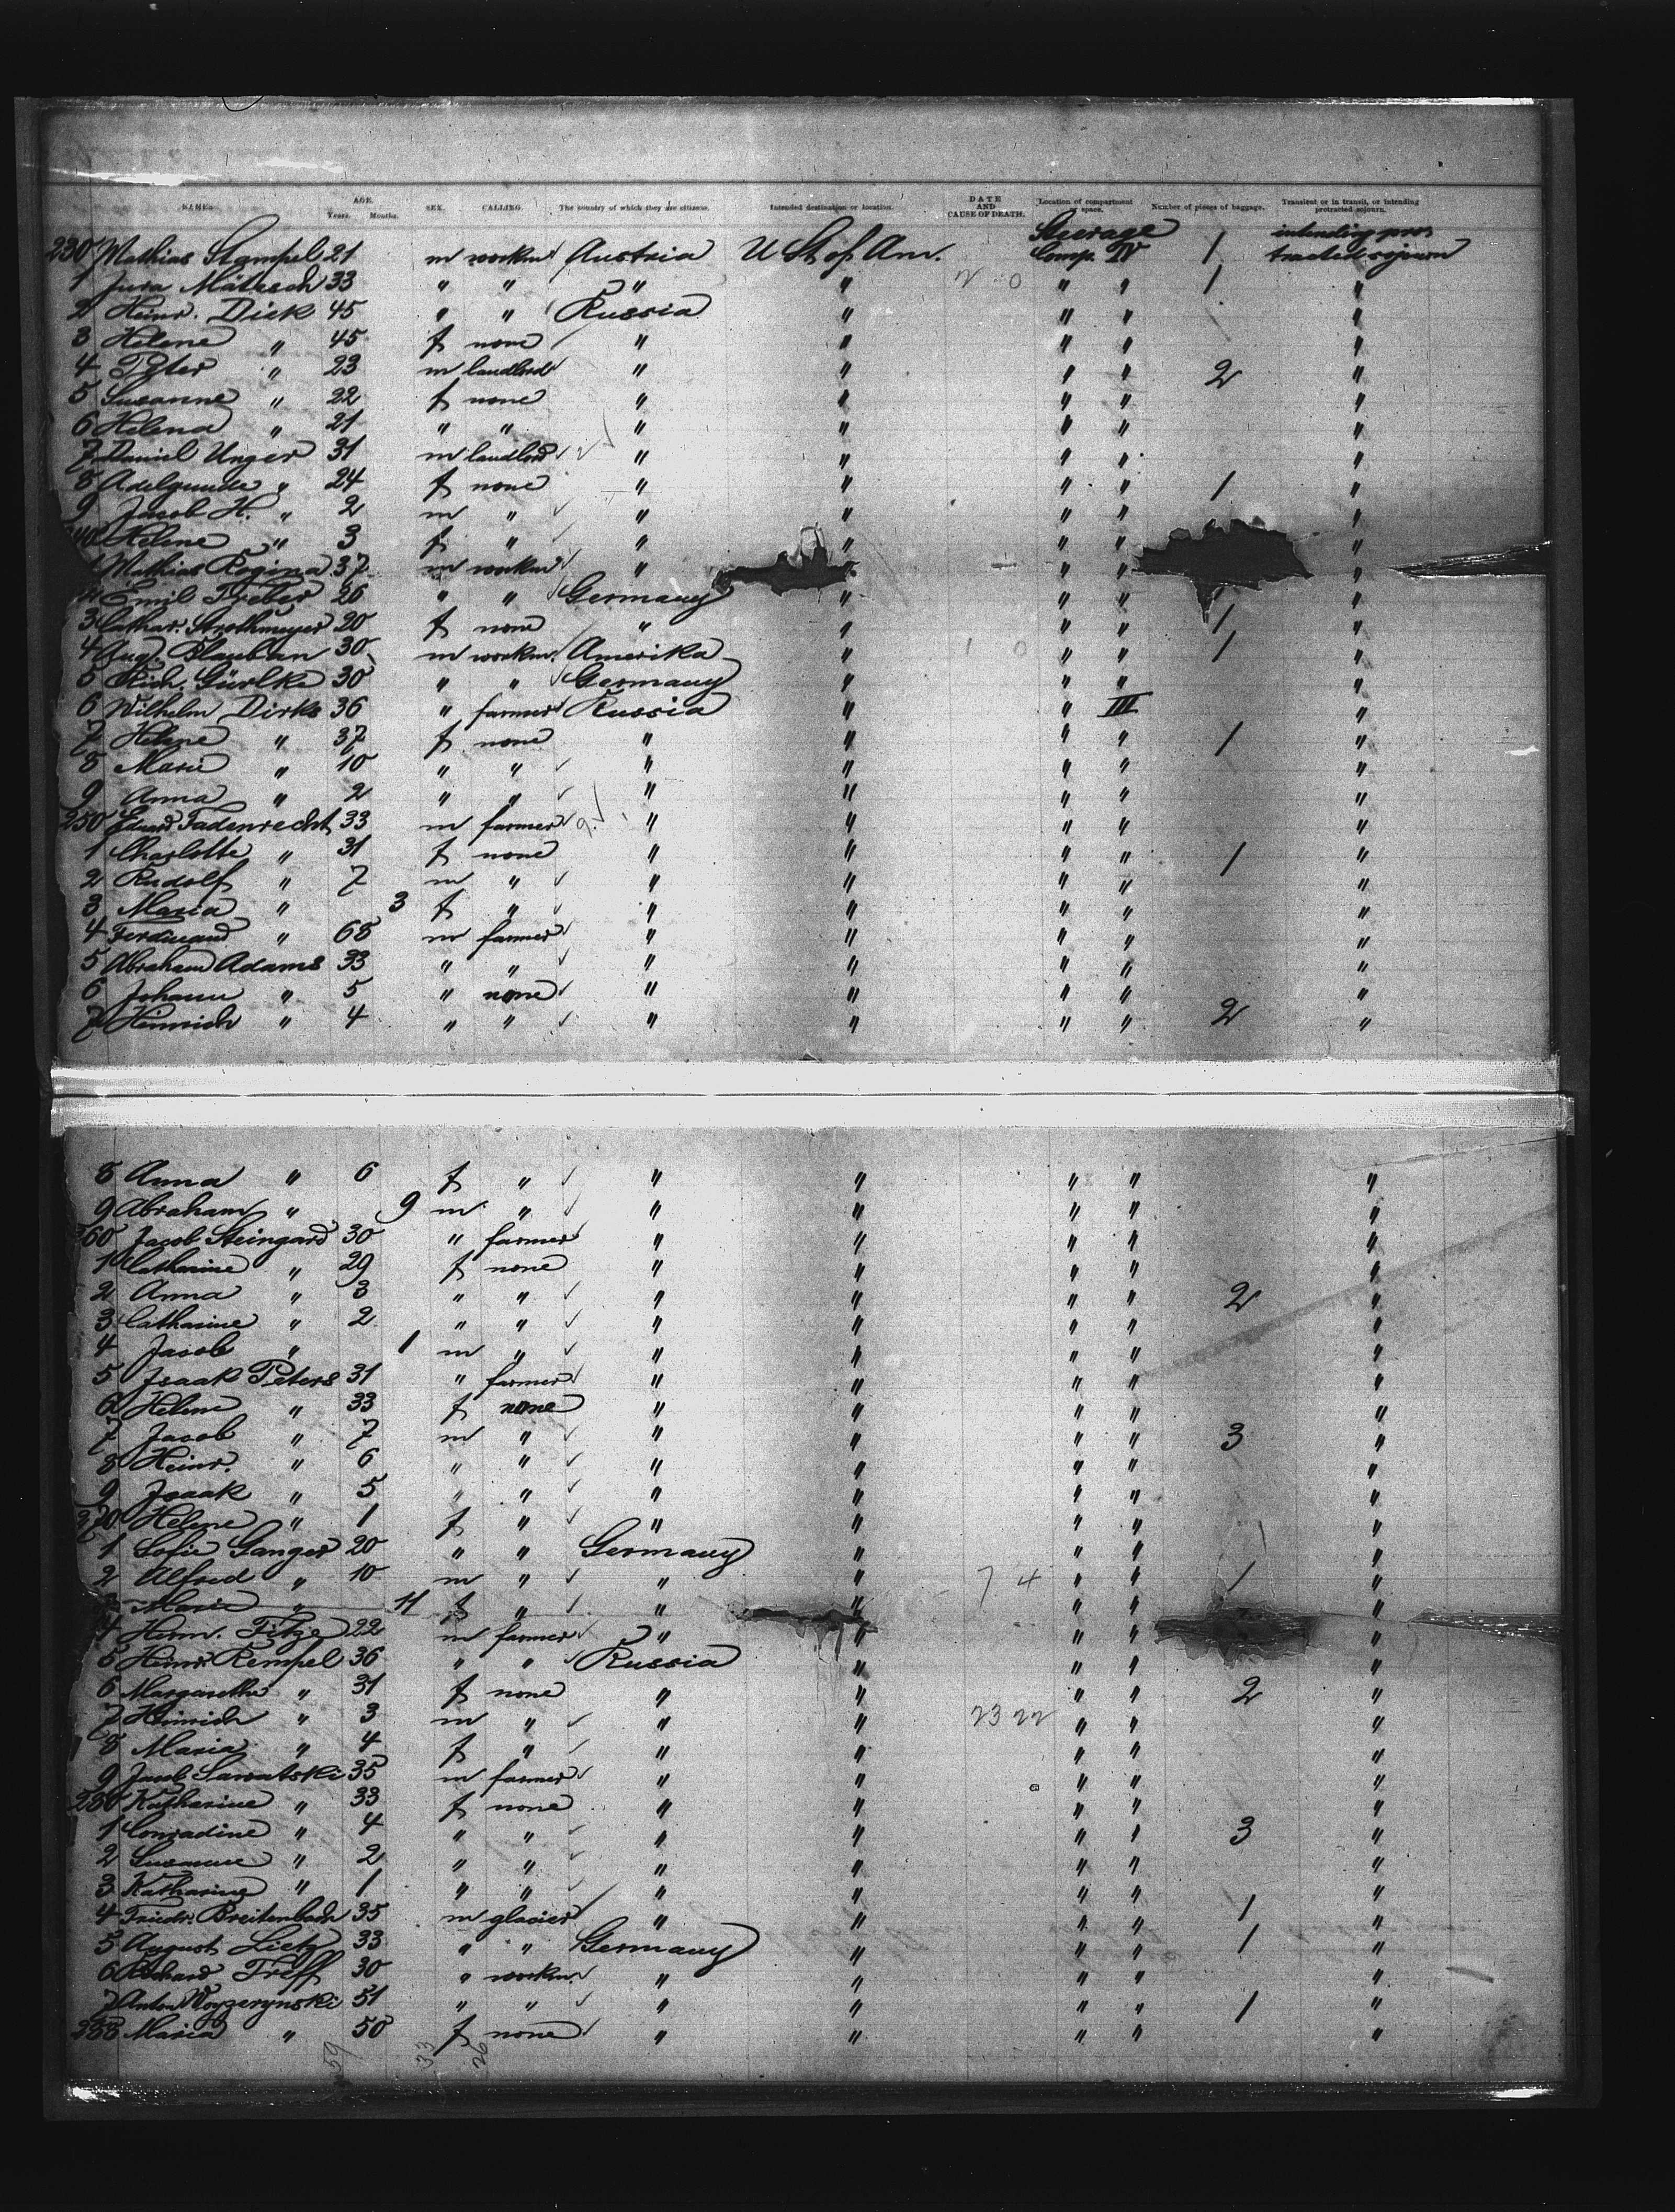 NAMES. AGE. Years. Months. SEX. CALLING. The country of which they are citizens. Intended destination or location. DATE AND CAUSE OF DEATH. Location of compartment or space. Number of pieces of baggage. Transient or in transit, or intending protracted sojourn.
230 Mathias Stampel 21 m workm Austria U St of Am. Steerage Comp. IV 1 intending protracted sojourn
1 Jura Mätesch 33 " " " " 2 0 " " 1 "
2 Heinr. Dick 45 " " Russia " " " "
3 Helene " 45 f none " " " " "
4 Peter " 23 m landlord " " " " 2 "
5 Susanne " 22 f none " " " " "
6 Helena " 21 " " " " " " "
7 Daniel Unger 31 m landlord " " " " "
8 Adelgunde " 24 f none " " " " 1 "
9 Jacob H. " 2 m " " " " " "
240 Helene " 3 f " " " " " "
Mathias Rogina 37 m workm " " " " "
Emil Treber 26 " " Germany " " " "
3 Cathar. Strothmeyer 20 f none " " " " 1 "
4 Aug. Blauban 30 m workm. Amerika " 1 0 " " 1 "
5 Rich. Gürlke 30 " " Germany " " " "
6 Wilhelm Dirks 36 " farmer Russia " " III "
7 Helene " 37 f none " " " " 1 "
8 Marie " 10 " " " " " " "
9 Anna " 2 " " " " " " "
250 Eduard Fadenrecht 33 m farmer " " " " "
1 Charlotte " 31 f none " " " " 1 "
2 Rudolf " 7 m " " " " " "
3 Maria " 3 f " " " " " "
4 Ferdinand " 68 m farmer " " " " "
5 Abraham Adams 33 " " " " " " "
6 Johann " 5 " none " " " " "
7 Heinrich " 4 " " " " " " 2 "
8 Anna " 6 f " " " " " "
9 Abraham " 9 m " " " " " "
260 Jacob Steingard 30 " farmer " " " " "
1 Catharine " 29 f none " " " " "
2 Anna " 3 " " " " " " 2 "
3 Catharine " 2 " " " " " " "
4 Jacob " 1 m " " " " " "
5 Isaak Peters 31 " farmer " " " " "
6 Helene " 33 f none " " " " "
7 Jacob " 7 m " " " " " 3 "
8 Heinr. " 6 " " " " " " "
9 Isaak " 5 " " " " " " "
270 Helene " 1 f " " " " " "
1 Sofie Ganger 20 " " Germany " " " "
2 Alfred " 10 m " " " 7 4 " " 1 "
Marie " 11 f " " " " " "
4 Herm. Fitze 22 m farmer " " " " "
5 Heinr. Rempel 36 " " Russia " " " "
6 Margarethe " 31 f none " " " " 2 "
7 Heinrich " 3 m " " " 23 22 " " "
8 Maria " 4 f " " " " " "
9 Jacob Sawatski 35 m farmer " " " " "
280 Katharine " 33 f none " " " " "
1 Conradine " 4 " " " " " " 3 "
2 Susanne " 2 " " " " " " "
3 Katharine " 1 " " " " " " "
4 Friedr. Breitenbach 35 m glacier " " " " 1 "
5 August Lietz 33 " " Germany " " " 1 "
6 Richard Treff 30 " workm. " " " " "
7 Anton Woyzerynski 51 " " " " " " 1 "
288 Maria " 50 f none " " " " "
59 33 26